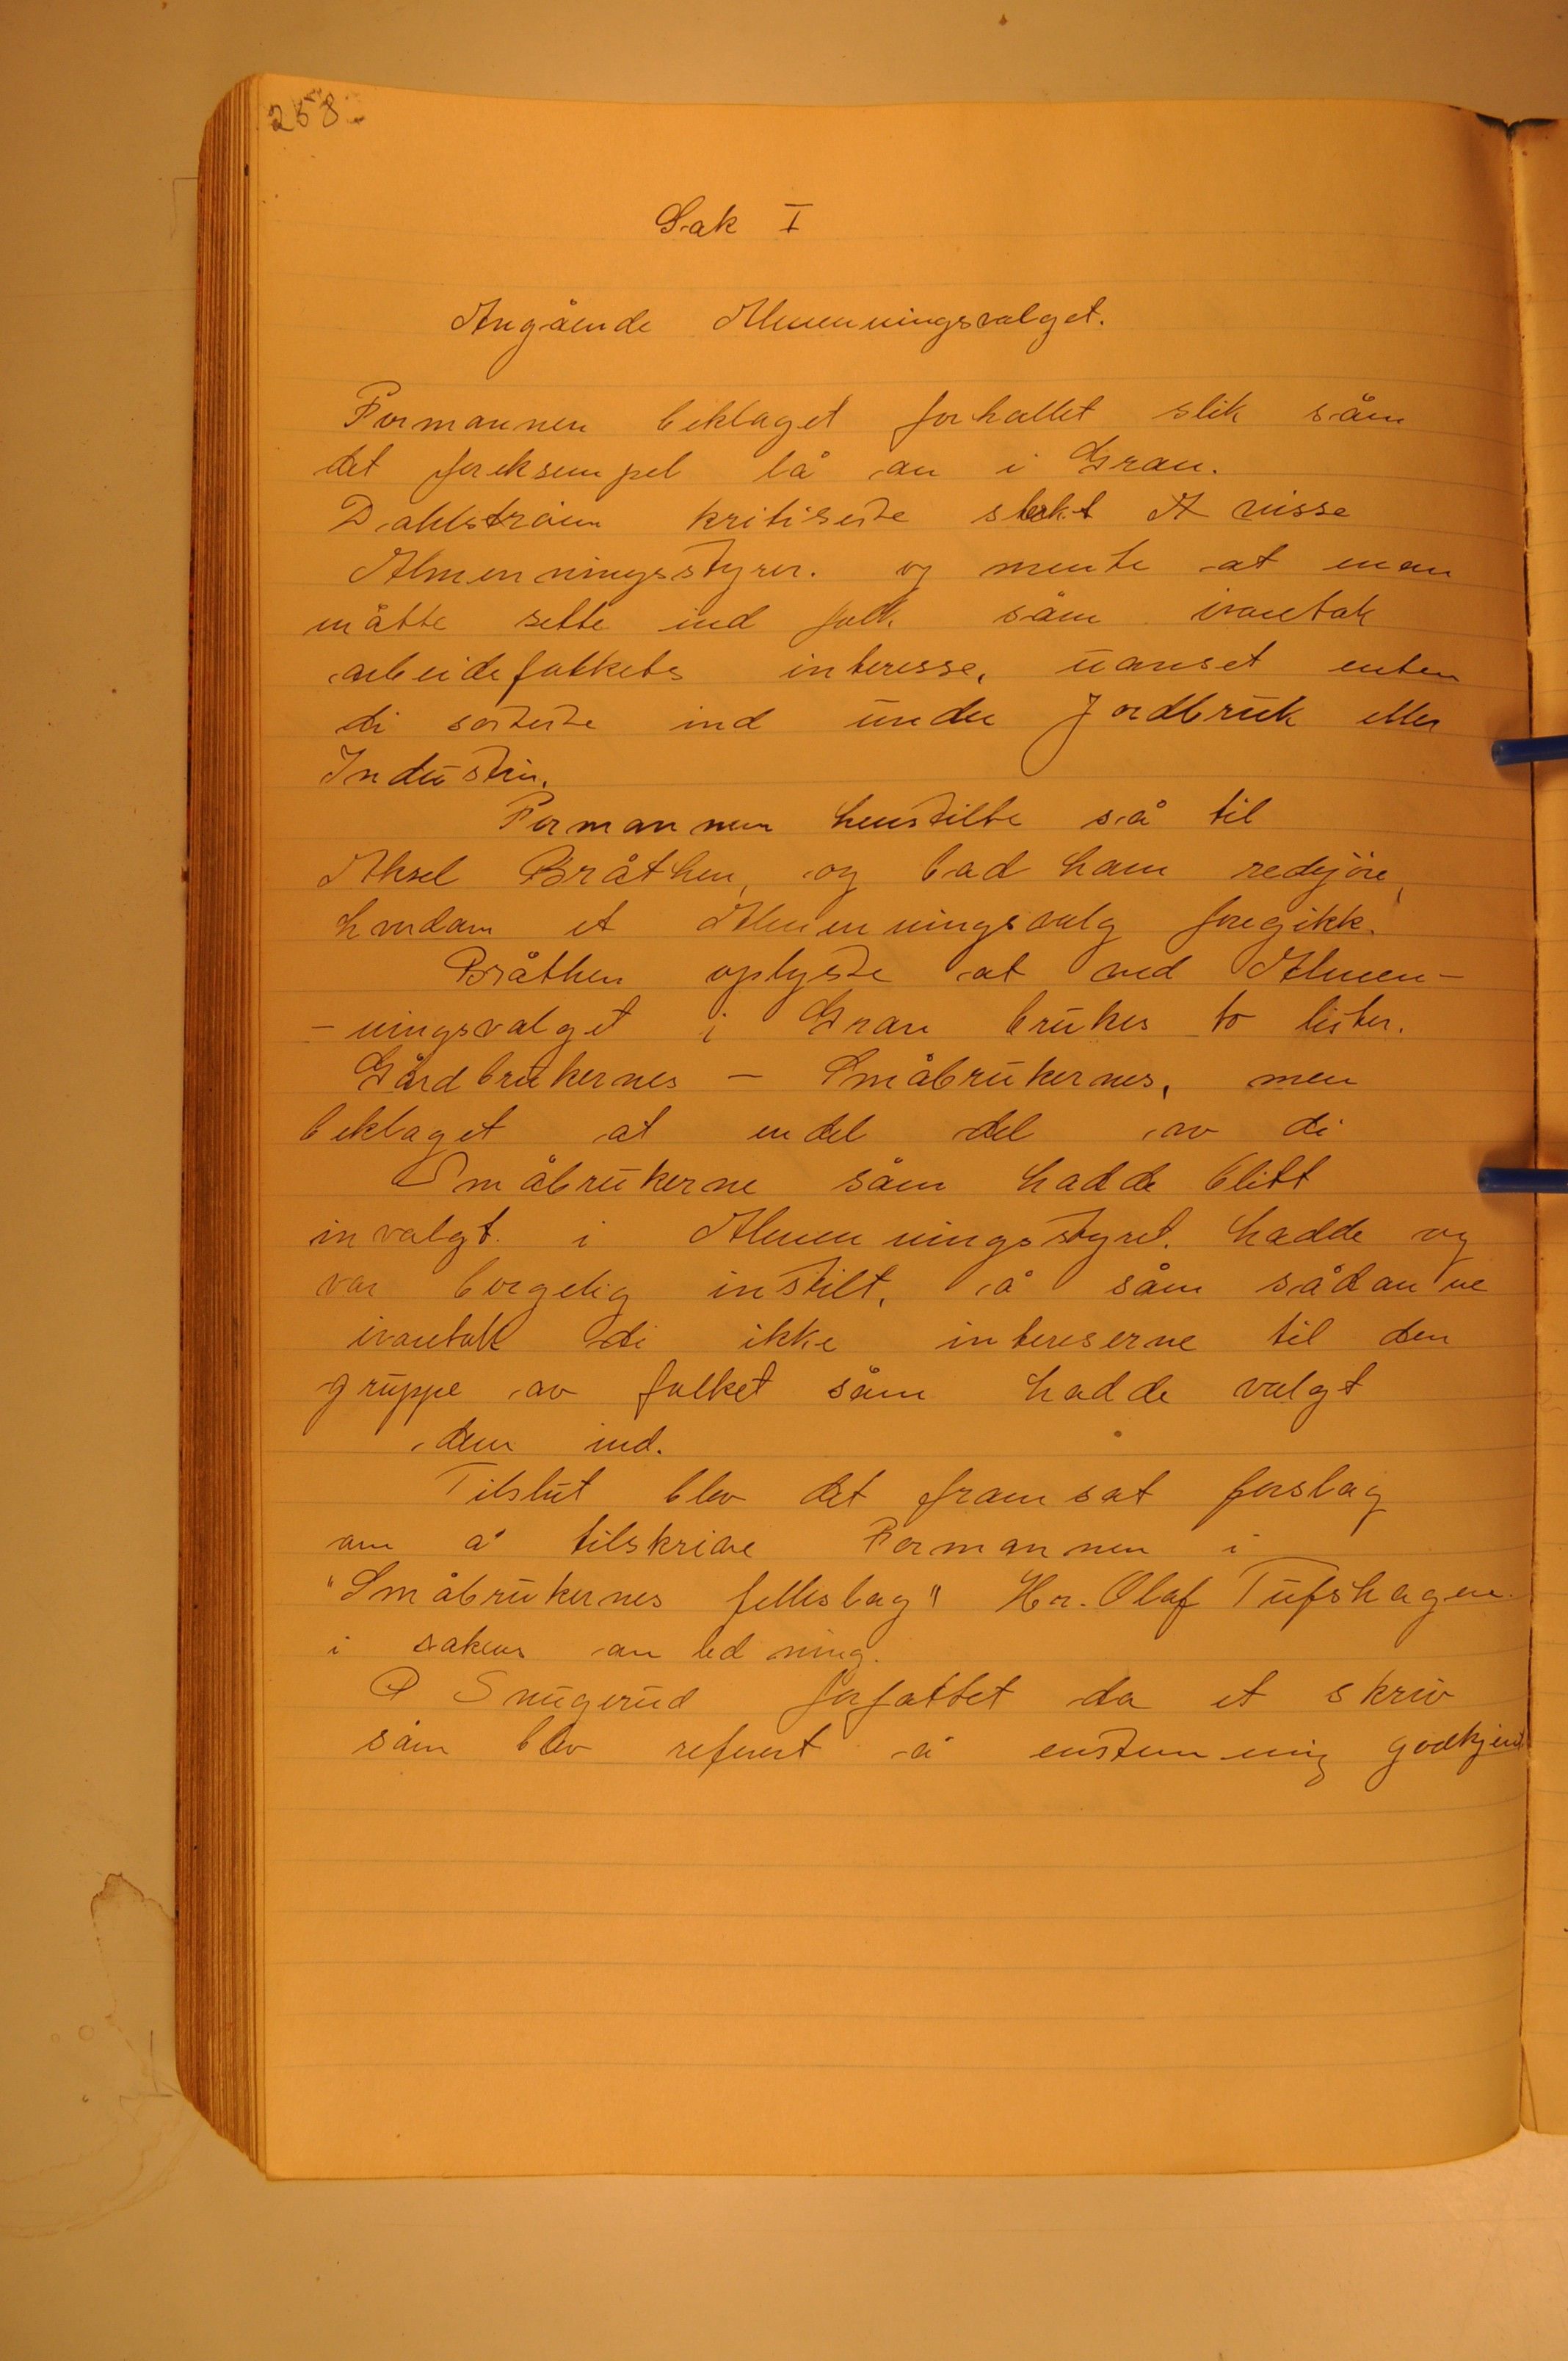 258.
Sak I
Angående Almenningsvalget.
Formannen beklaget forhallet slik såm
det foreksempel lå an i Gran.
Dahlstrøm kritiserte sterkt A visse
Almenningsstyrer. og mente at man
måtte sette ind folk såm ivaretok
arbeidefolkets interesse, uanset enten
di sorterte ind under Jordbruk eller
Industrin.
Formannen henstilte så til
Aksel Bråthen, og bad ham redejøre,
hvordam et Almenningsvalg foregikk.
Bråthen oplyste at ved Almen-
-ningsvalget i Gran brukes to lister.
Gårdbrukernes - Småbrukernes, men
beklaget at endel del av di
Småbrukerne såm hadde blitt
invalgt i Almenningsstyret. hadde og
var borgelig instilt, å såm sådanne
ivaretok di ikke intereserne til den
gruppe av folket såm hadde valgt
dem ind.
Tilslut blev det framsat forslag
om å tilskrive Formannen i
"Småbrukernes felleslag" Hr. Olaf Tufshagen.
i sakens anledning.
P Snugerud forfattet da et skriv
såm blev referert å enstemmig godkjent